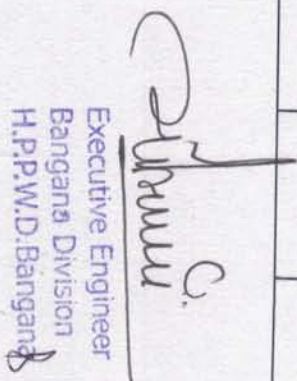 Executive Engineer
Bangana Division
H.P.P.W.D.Bangana